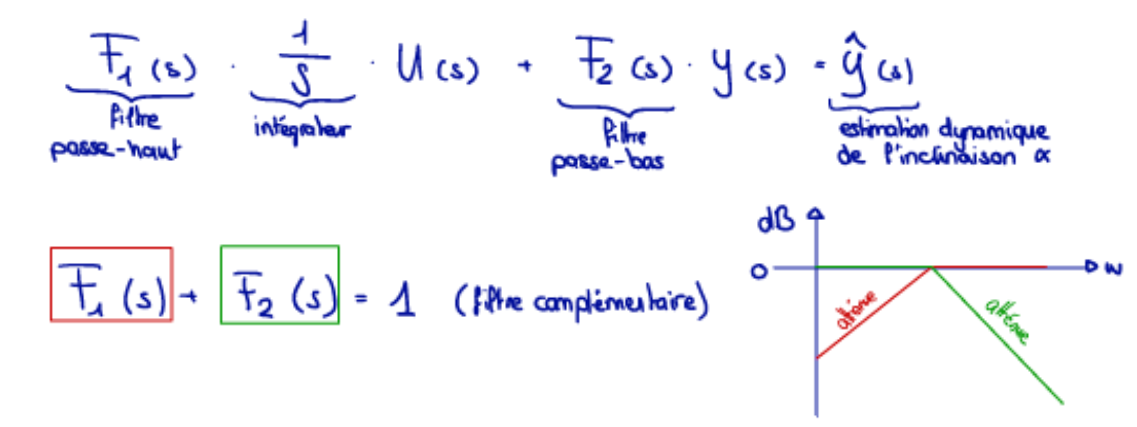 F₁(s) · 1/S · U(s) + F₂(s) · y(s) = ŷ(s)
filtre passe-haut
intégrateur
filtre passe-bas
estimation dynamique de l'inclinaison α
F₁(s) + F₂(s) = 1 (filtre complémentaire)
dB
0
w
atténue
atténue